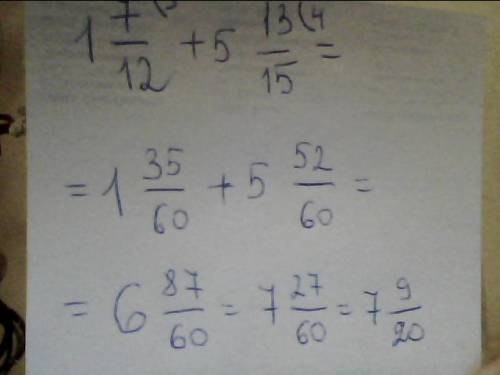 1 7/12 + 5 13/15 (4 =
= 1 35/60 + 5 52/60 =
= 6 87/60 = 7 27/60 = 7 9/20